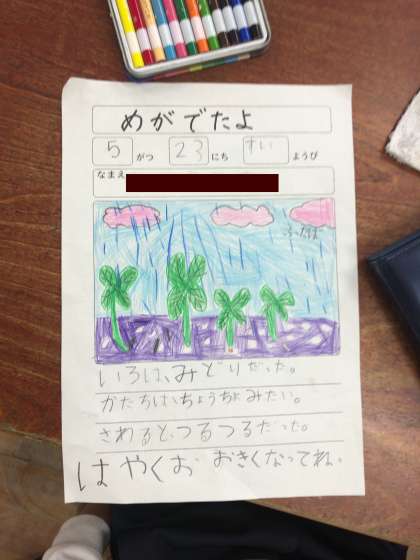 めがでたよ
5 がつ 23 にち すい ようび
なまえ
ふたば
いろは、みどりだった。
かたちは、ちょうちょみたい。
さわると、つるつるだった。
はやくお おきくなってね。